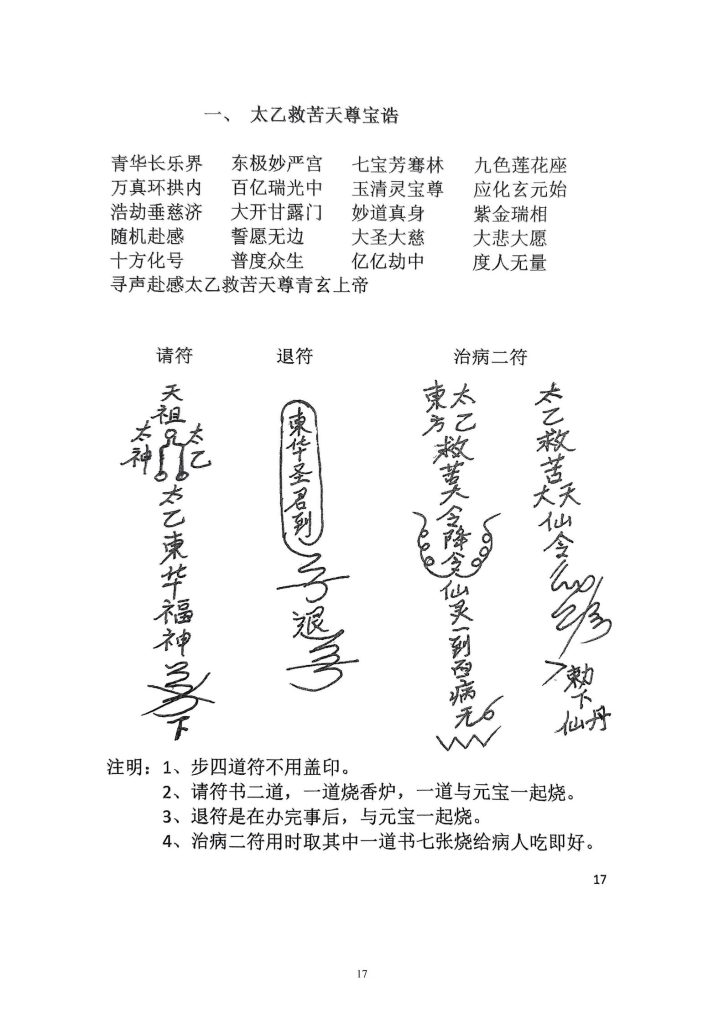 一、 太乙救苦天尊宝诰
青华长乐界 东极妙严宫 七宝芳骞林 九色莲花座
万真环拱内 百亿瑞光中 玉清灵宝尊 应化玄元始
浩劫垂慈济 大开甘露门 妙道真身 紫金瑞相
随机赴感 誓愿无边 大圣大慈 大悲大愿
十方化号 普度众生 亿亿劫中 度人无量
寻声赴感太乙救苦天尊青玄上帝
请符 退符 治病二符
天祖
太神
太乙
太乙東华福神
下
東华圣君到
退
東方
太乙救苦
令降令仙灵一到百病无
太乙救苦天
大仙令
勅下
仙丹
注明：1、步四道符不用盖印。
2、请符书二道，一道烧香炉，一道与元宝一起烧。
3、退符是在办完事后，与元宝一起烧。
4、治病二符用时取其中一道书七张烧给病人吃即好。
17
17